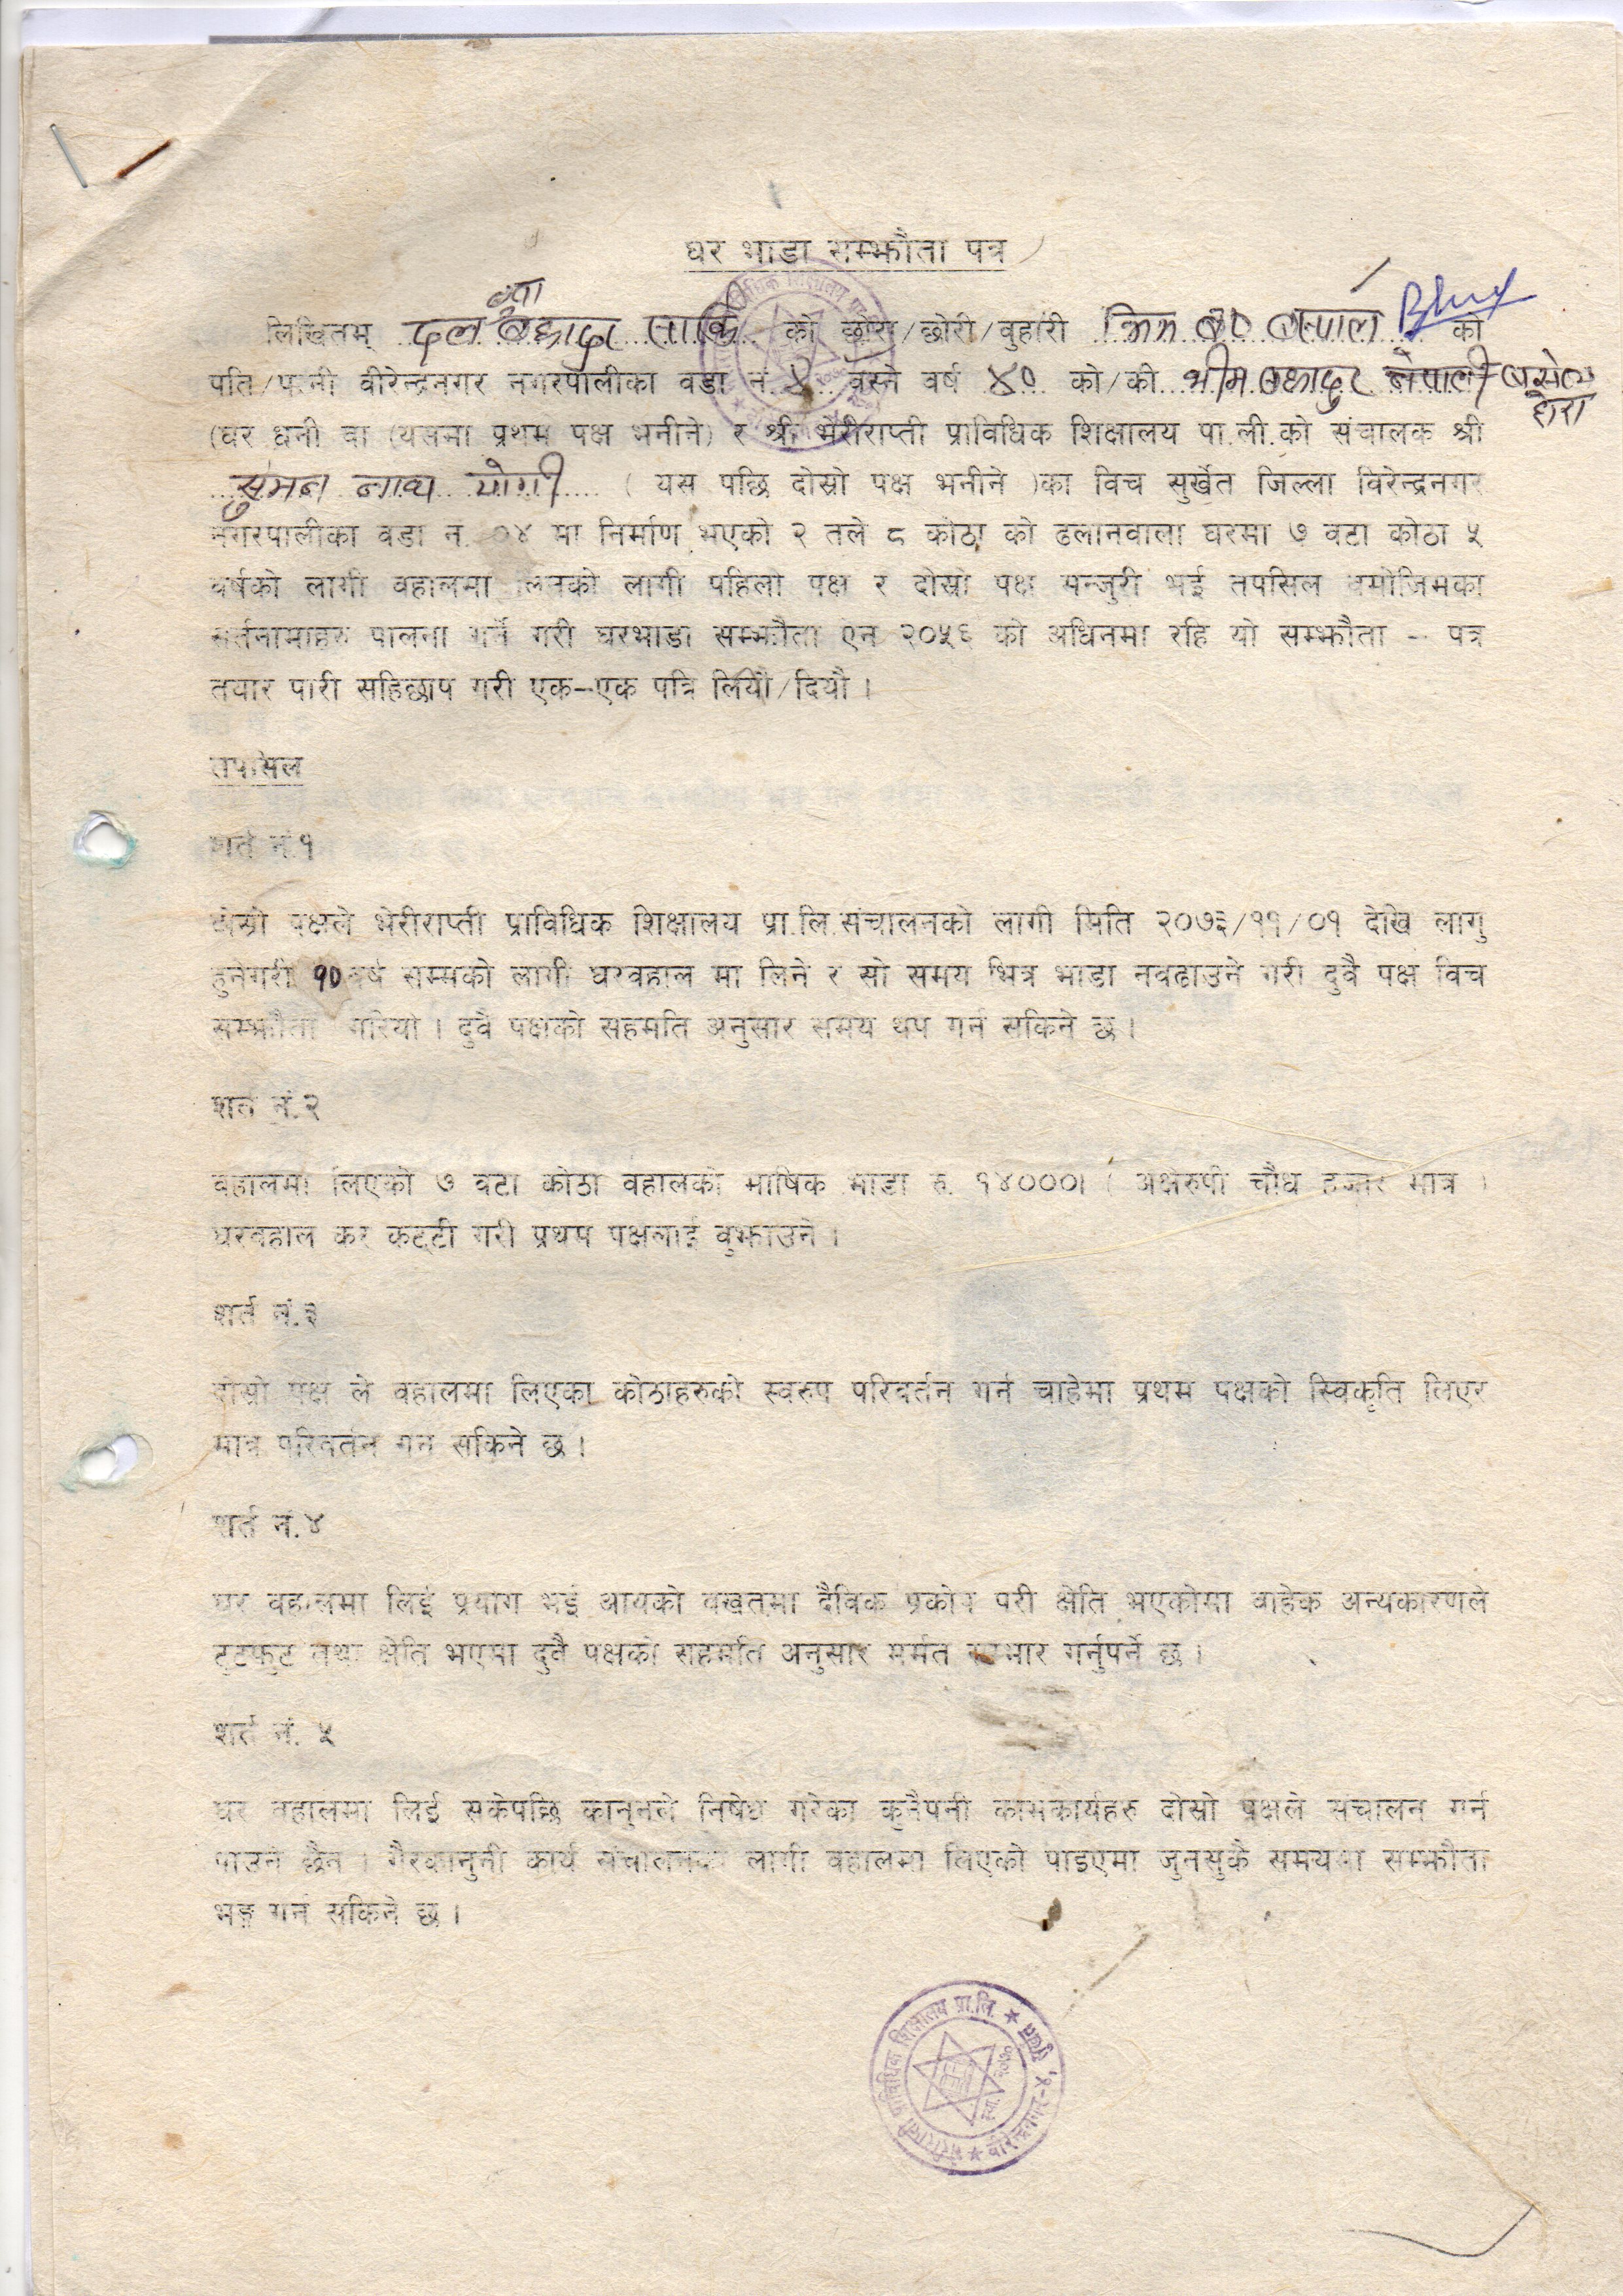 घर भाडा सम्झौता पत्र
लिखितम् दल बहादुर सार्कि को छोरा/छोरी/वुहारी को
पति/पत्नी वीरेन्द्रनगर नगरपालीका वडा नं ४ वस्ने वर्ष ४० को/की भीम बहादुर नेपाली
(घर धनी वा (यसमा प्रथम पक्ष भनीने) र श्री भेरीराप्ती प्राविधिक शिक्षालय पा.ली.को संचालक श्री
सुमन नाथ योगी ( यस पछि दोस्रो पक्ष भनीने )का विच सुर्खेत जिल्ला विरेन्द्रनगर
नगरपालीका वडा न. ०४ मा निर्माण भएको २ तले ८ कोठा को ढलानवाला घरमा ७ वटा कोठा ५
वर्षको लागी वहालमा लिनको लागी पहिलो पक्ष र दोस्रो पक्ष मन्जुरी भई तपसिल वमोजिमका
सर्तनामाहरु पालना गर्ने गरी घरभाडा सम्झौता ऐन २०५६ को अधिनमा रहि यो सम्झौता - पत्र
तयार पारी सहिछाप गरी एक-एक पत्रि लियौं/दियौं ।
तपसिल
शर्त नं.१
दोस्रो पक्षले भेरीराप्ती प्राविधिक शिक्षालय प्रा.लि.संचालनको लागी मिति २०७३/११/०१ देखि लागु
हुनेगरी १० वर्ष सम्मको लागी घरवहाल मा लिने र सो समय भित्र भाडा नवढाउने गरी दुवै पक्ष विच
सम्झौता गरियो । दुवै पक्षको सहमति अनुसार समय थप गर्न सकिने छ ।
शर्त नं.२
वहालमा लिएको ७ वटा कोठा वहालको माषिक भाडा रु. १४०००। ( अक्षेरुपी चौध हजार मात्र ।
घरवहाल कर कट्टी गरी प्रथम पक्षलाई वुझाउने ।
शर्त नं.३
दोस्रो पक्ष ले वहालमा लिएका कोठाहरुको स्वरुप परिवर्तन गर्न चाहेमा प्रथम पक्षको स्विकृति लिएर
मात्र परिवर्तन गर्न सकिने छ ।
शर्त नं.४
घर वहालमा लिई प्रयोग भई आएको वखतमा दैविक प्रकोप परी क्षेति भएकोमा वाहेक अन्यकारणले
टुटफुट तथा क्षेति भएमा दुवै पक्षको सहमति अनुसार मर्मत सम्भार गर्नुपर्ने छ ।
शर्त नं. ५
घर वहालमा लिई सकेपछि कानुनले निषेध गरेका कुनैपनी कामकार्यहरु दोस्रो पक्षले संचालन गर्न
पाउने छैन । गैरकानुनी कार्य संचालनको लागी वहालमा लिएको पाइएमा जुनसुकै समयमा सम्झौता
भङ्ग गर्न सकिने छ ।
भेरीराप्ती प्राविधिक शिक्षालय प्रा.लि. ★ वीरेन्द्रनगर-४, सुर्खेत ★
स्था. २०७०